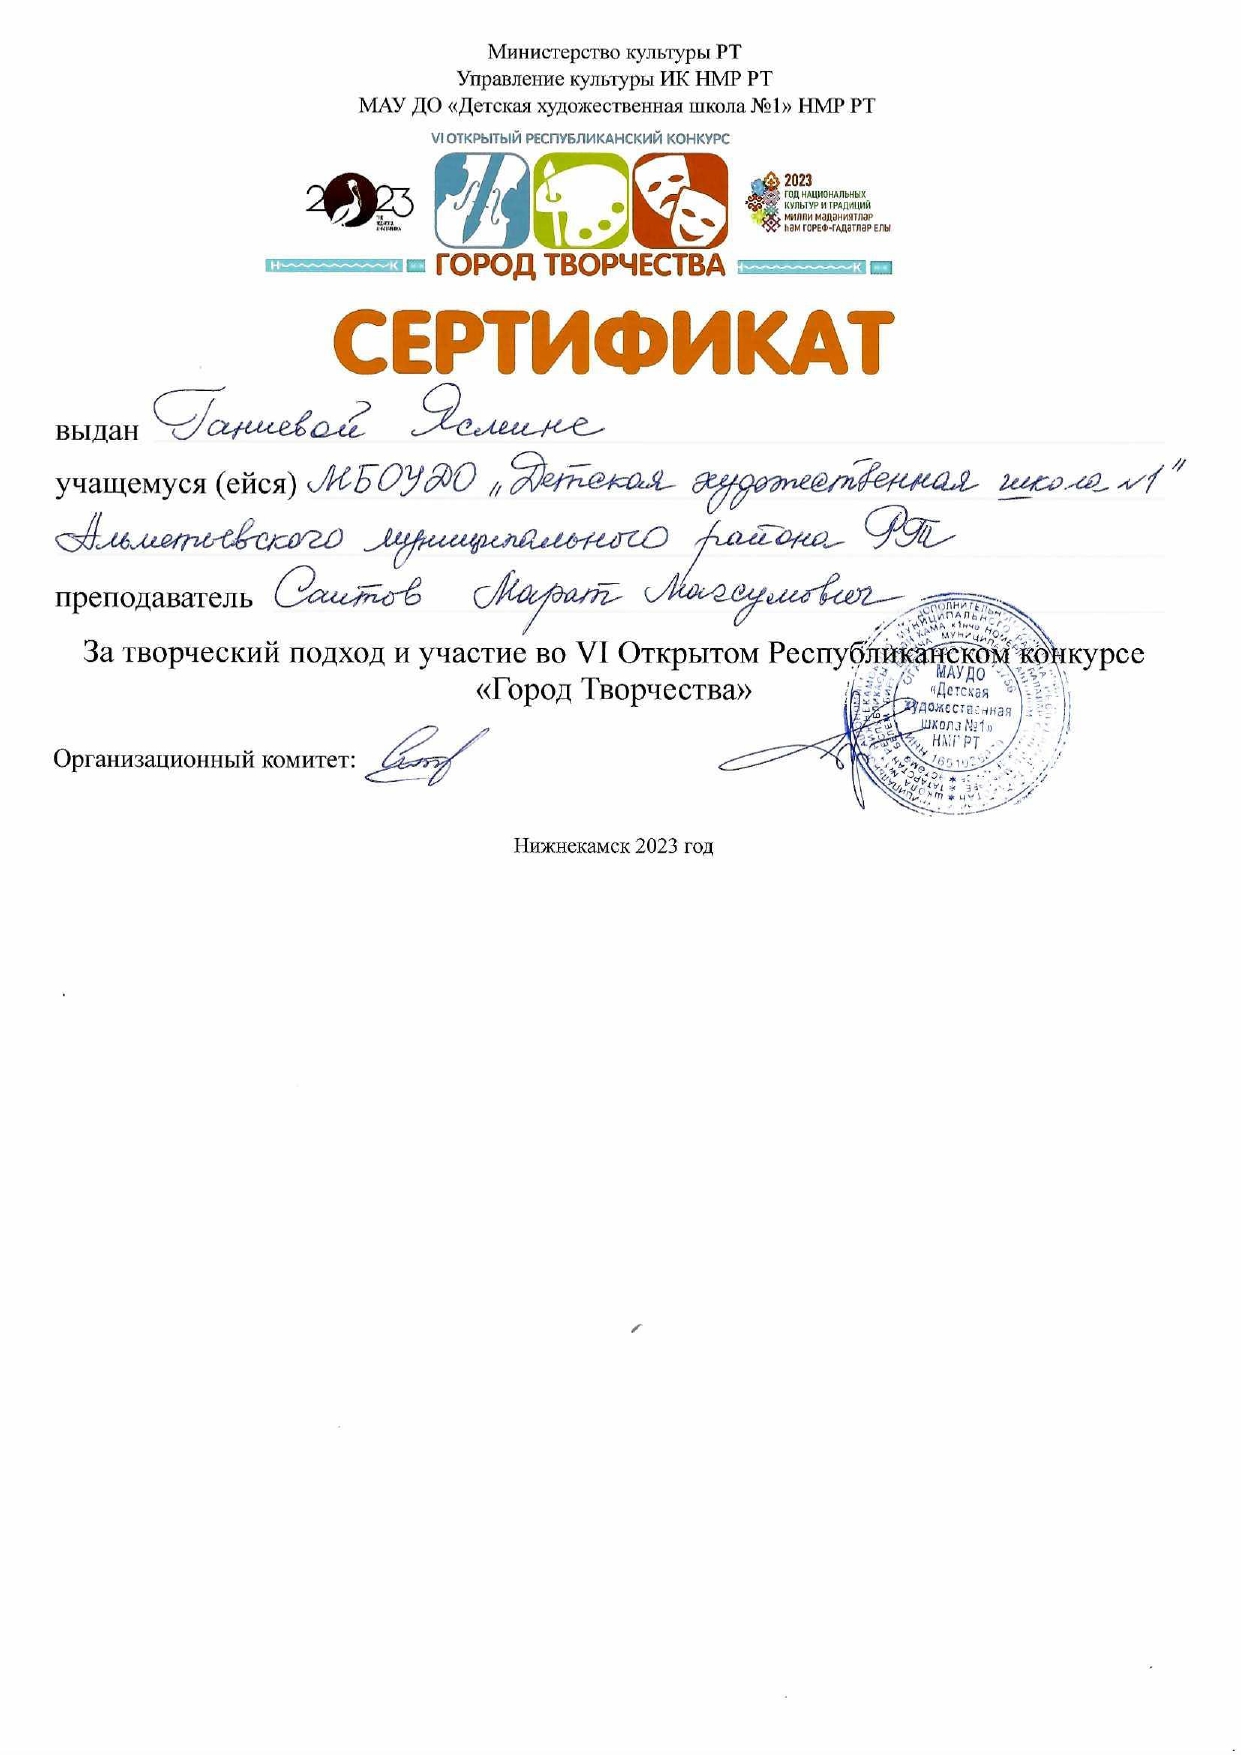 Министерство культуры РТ
Управление культуры ИК НМР РТ
МАУ ДО «Детская художественная школа №1» НМР РТ
VI ОТКРЫТЫЙ РЕСПУБЛИКАНСКИЙ КОНКУРС
2023
2023
ГОД НАЦИОНАЛЬНЫХ
КУЛЬТУР И ТРАДИЦИЙ
МИЛЛИ МӘДӘНИЯТЛӘР
ҺӘМ ГОРЕФ-ГАДӘТЛӘР ЕЛЫ
ГОРОД ТВОРЧЕСТВА
СЕРТИФИКАТ
выдан Ганиевой Ясмине
учащемуся (ейся) МБОУДО „Детская художественная школа №1"
Альметьевского муниципального района РТ
преподаватель Саитов Марат Магсумович
За творческий подход и участие во VI Открытом Республиканском конкурсе
«Город Творчества»
МАУДО
«Детская
художественная
школа №1»
НМР РТ
Организационный комитет:
Нижнекамск 2023 год